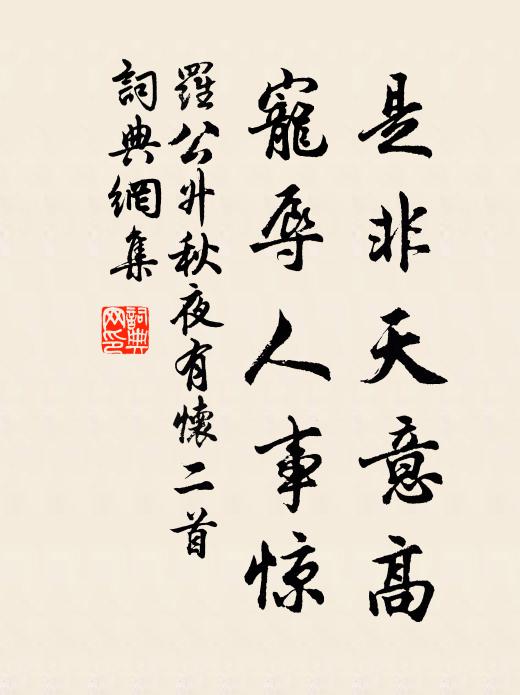 是非天意高
寵辱人事惊
羅公升秋夜有懷二首
詞典網集
詞典
网印